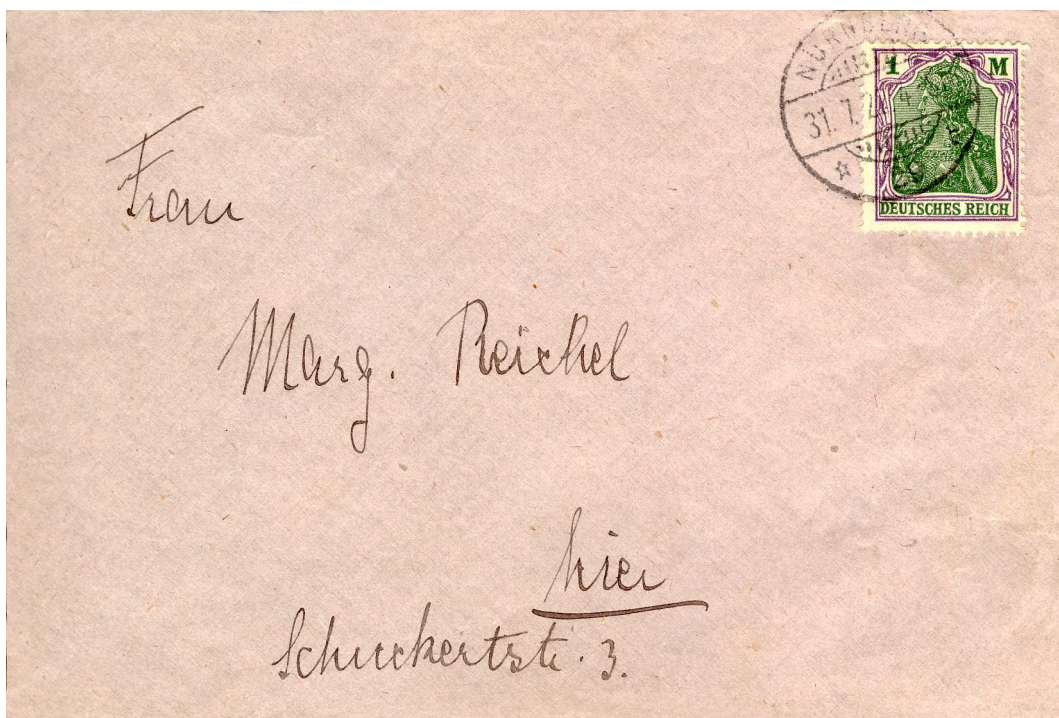 NÜRNBERG
31. 7. 2
1 M
DEUTSCHES REICH
Frau
Marg. Reichel
hier
Schuckertstr. 3.